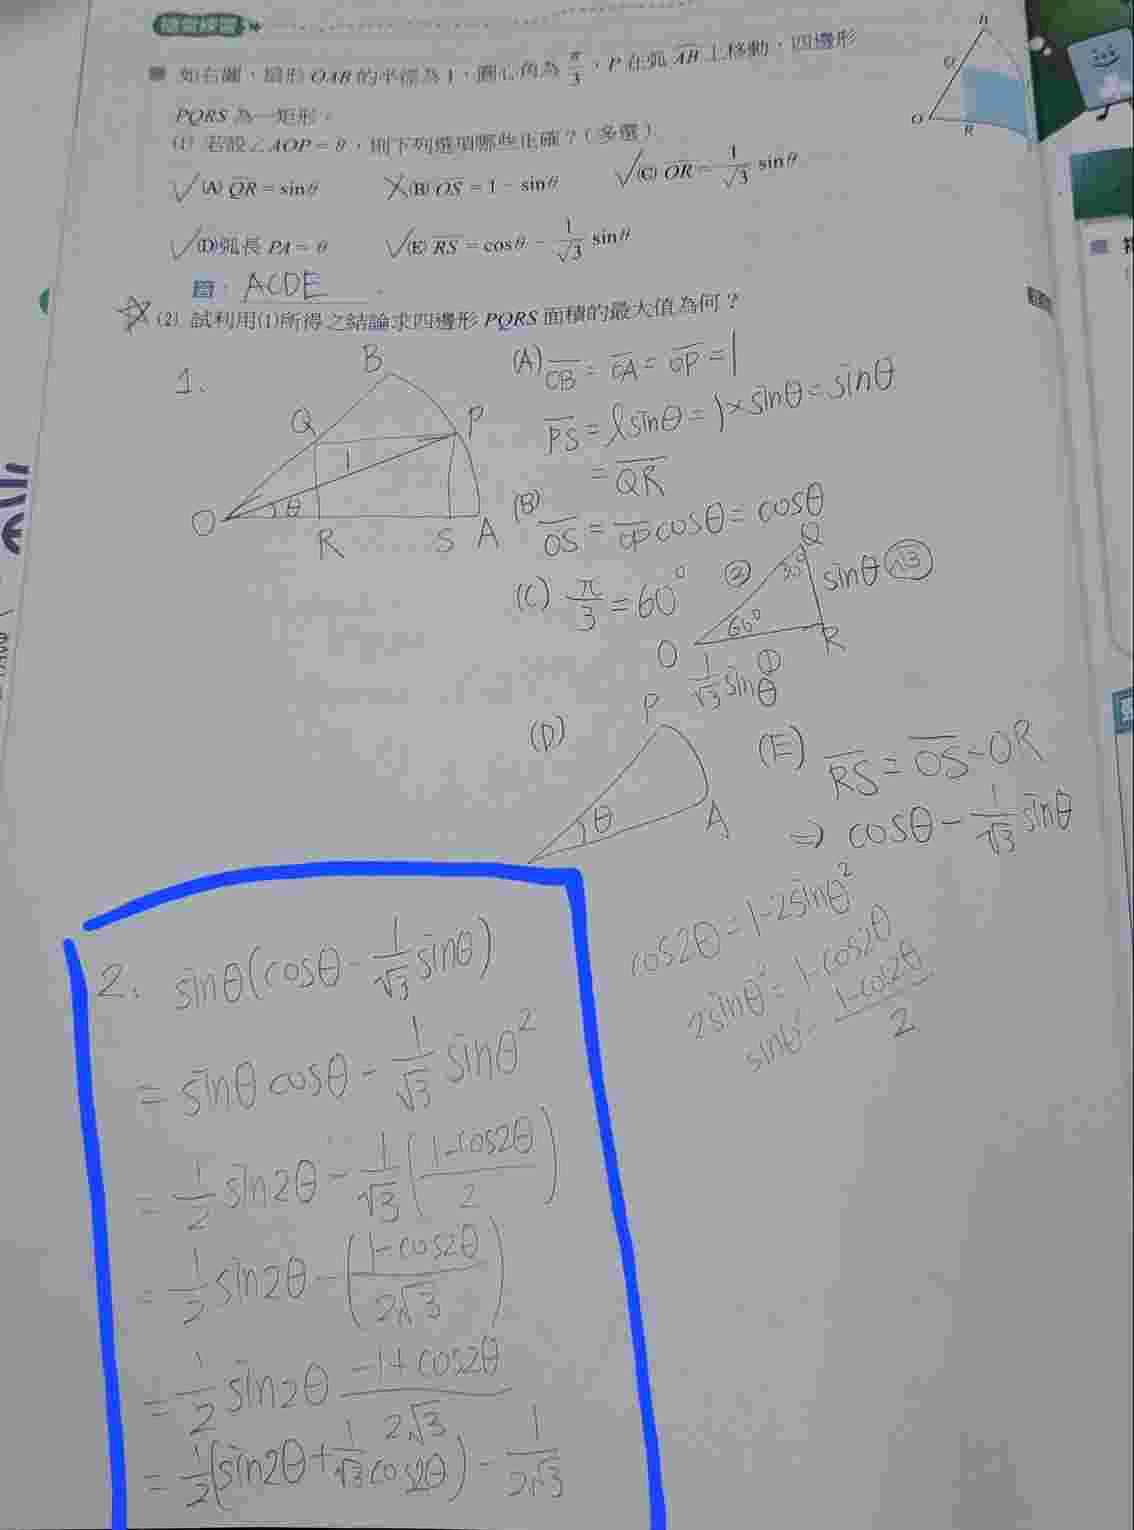 隨堂練習
■ 如右圖，扇形OAB的半徑為1，圓心角為 π/3，P在弧AB上移動，四邊形
PQRS為一矩形。
(1) 若設∠AOP = θ，則下列選項哪些正確？(多選)
✓(A) QR = sinθ ✗(B) OS = 1 - sinθ ✓(C) OR = 1/√3 sinθ
✓(D)弧長PA = θ ✓(E) RS = cosθ - 1/√3 sinθ
答： ACDE 。
☆(2) 試利用(1)所得之結論求四邊形PQRS面積的最大值為何？
B
Q
O
R
1.
B
Q
P
1
O
θ
R
S
A
(A) OB = OA = OP = 1
PS = lsinθ = 1×sinθ = sinθ
= QR
(B) OS = OP cosθ = cosθ
(C) π/3 = 60°
②
Q
30°
sinθ √3
60°
O
R
①
1/√3 sinθ
(D)
P
θ
A
(E) RS = OS - OR
⇒ cosθ - 1/√3 sinθ
cos2θ = 1-2sinθ²
2sinθ² = 1-cos2θ
sinθ² = (1-cos2θ)/2
2. sinθ(cosθ - 1/√3 sinθ)
= sinθ cosθ - 1/√3 sinθ²
= 1/2 sin2θ - 1/√3 ((1-cos2θ)/2)
= 1/2 sin2θ - ((1-cos2θ)/(2√3))
= 1/2 sin2θ (-1+cos2θ)/(2√3)
= 1/2 (sin2θ + 1/√3 cos2θ) - 1/(2√3)